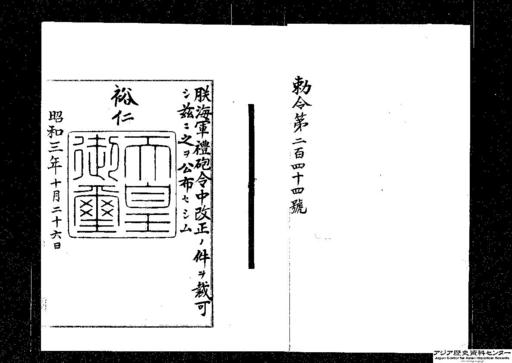 勅令第二百四十四號
朕海軍禮砲令中改正ノ件ヲ裁可
シ茲ニ之ヲ公布セシム
裕仁
天皇
御璽
昭和三年十月二十六日
アジア歴史資料センター
Japan Center for Asian Historical Records